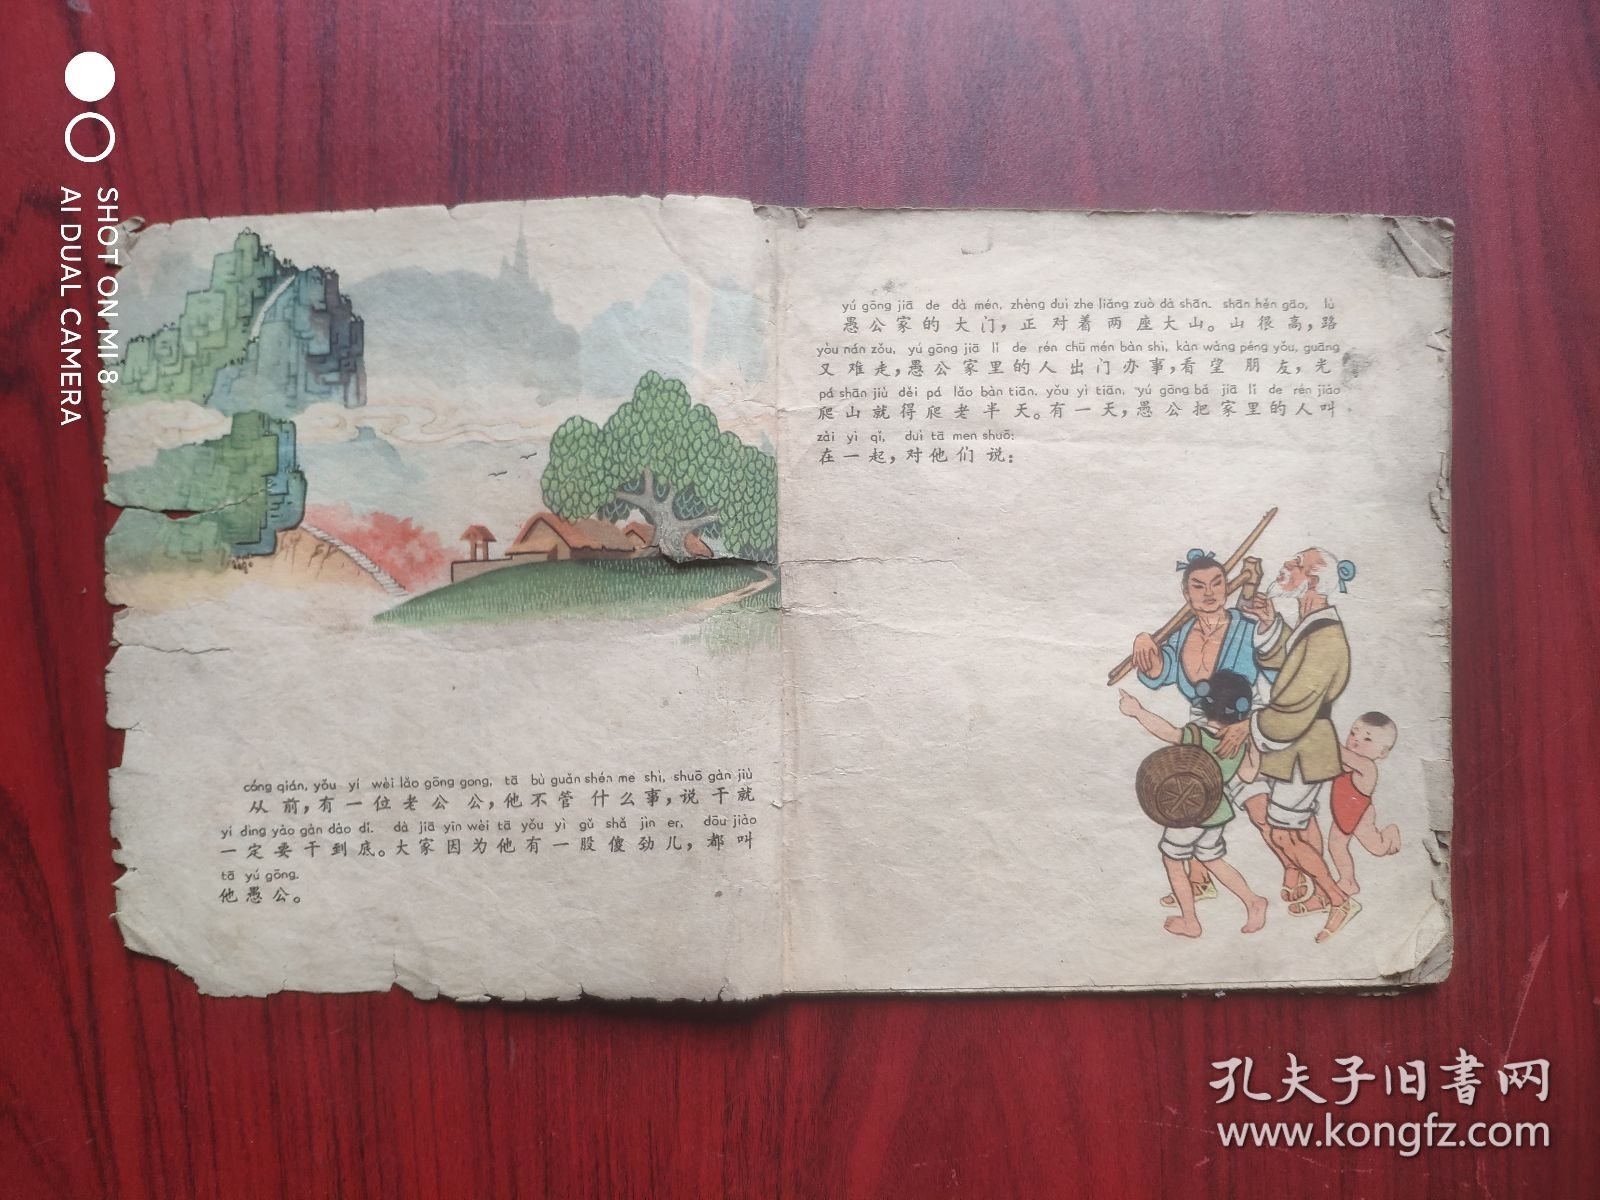 SHOT ON MI 8
AI DUAL CAMERA
cóng qián, yǒu yí wèi lǎo gōng gong, tā bù guǎn shén me shì, shuō gàn jiù
从前，有一位老公公，他不管什么事，说干就
yí dìng yào gàn dào dǐ. dà jiā yīn wèi tā yǒu yì gǔ shǎ jìn er, dōu jiào
一定要干到底。大家因为他有一股傻劲儿，都叫
tā yú gōng.
他愚公。
yú gōng jiā de dà mén, zhèng duì zhe liǎng zuò dà shān. shān hěn gāo, lù
愚公家的大门，正对着两座大山。山很高，路
yòu nán zǒu, yú gōng jiā lǐ de rén chū mén bàn shì, kàn wàng péng yǒu, guāng
又难走，愚公家里的人出门办事，看望朋友，光
pá shān jiù děi pá lǎo bàn tiān. yǒu yì tiān, yú gōng bǎ jiā lǐ de rén jiào
爬山就得爬老半天。有一天，愚公把家里的人叫
zài yì qǐ, duì tā men shuō:
在一起，对他们说：
孔夫子旧书网
www.kongfz.com